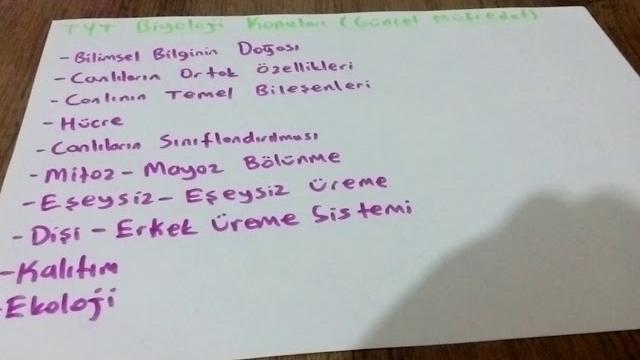 TYT Biyoloji Konuları (Güncel Müfredat)
- Bilimsel Bilginin Doğası
- Canlıların Ortak Özellikleri
- Canlının Temel Bileşenleri
- Hücre
- Canlıların Sınıflandırılması
- Mitoz - Mayoz Bölünme
- Eşeysiz - Eşeysiz Üreme
- Dişi - Erkek Üreme Sistemi
- Kalıtım
- Ekoloji